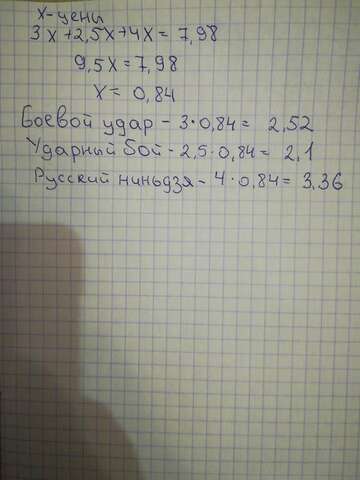 х-цены
3х+2,5х+4х=7,98
9,5х=7,98
х= 0,84
Боевой удар - 3·0,84= 2,52
Ударный бой - 2,5·0,84= 2,1
Русский ниньдзя - 4·0,84= 3,36